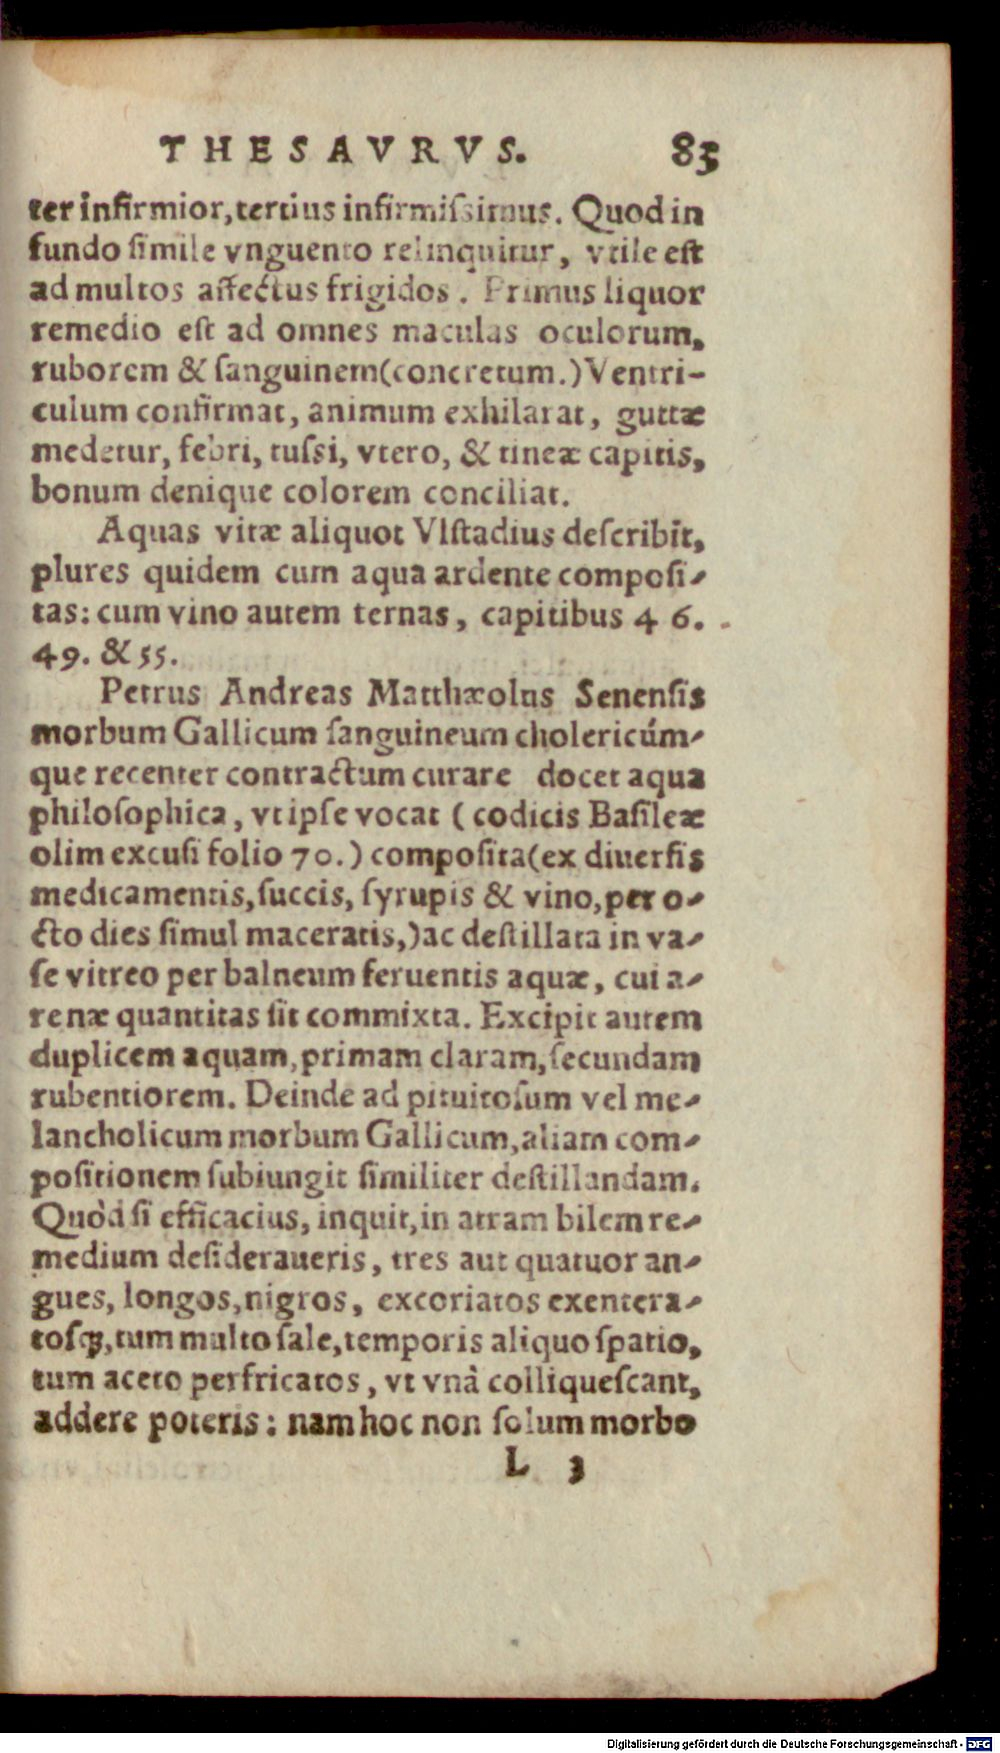 THESAVRVS. 83
ter infirmior, tertius infirmiſsimus. Quod in
fundo ſimile vnguento relinquitur, vtile eſt
ad multos affectus frigidos. Primus liquor
remedio eſt ad omnes maculas oculorum,
ruborem & ſanguinem (concretum.) Ventri-
culum confirmat, animum exhilarat, guttæ
medetur, febri, tuſsi, vtero, & tineæ capitis,
bonum denique colorem conciliat.
Aquas vitæ aliquot Vlſtadius deſcribit,
plures quidem cum aqua ardente compoſi-
tas: cum vino autem ternas, capitibus 46.
49. & 55.
Petrus Andreas Matthæolus Senenſis
morbum Gallicum ſanguineum cholericúm-
que recenter contractum curare docet aqua
philoſophica, vt ipſe vocat (codicis Baſileæ
olim excuſi folio 70.) compoſita (ex diuerſis
medicamentis, ſuccis, ſyrupis & vino, per o-
cto dies ſimul maceratis,) ac deſtillata in va-
ſe vitreo per balneum feruentis aquæ, cui a-
renæ quantitas ſit commixta. Excipit autem
duplicem aquam, primam claram, ſecundam
rubentiorem. Deinde ad pituitoſum vel me-
lancholicum morbum Gallicum, aliam com-
poſitionem ſubiungit ſimiliter deſtillandam.
Quòd ſi efficacius, inquit, in atram bilem re-
medium deſideraueris, tres aut quatuor an-
gues, longos, nigros, excoriatos exentera-
toſq́;, tum multo ſale, temporis aliquo ſpatio,
tum aceto perfricatos, vt vnà colliqueſcant,
addere poteris: nam hoc non ſolum morbo
L 3
Digitalisierung gefördert durch die Deutsche Forschungsgemeinschaft - DFG